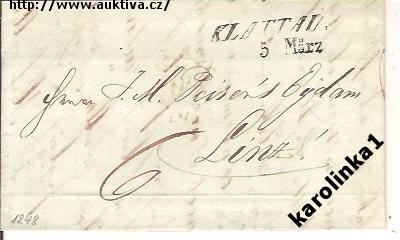 http://www.auktiva.cz/
KLATTAU.
5 März
Herrn J. M. Peisers Eydam
Linz!
6
1848
karolinka1